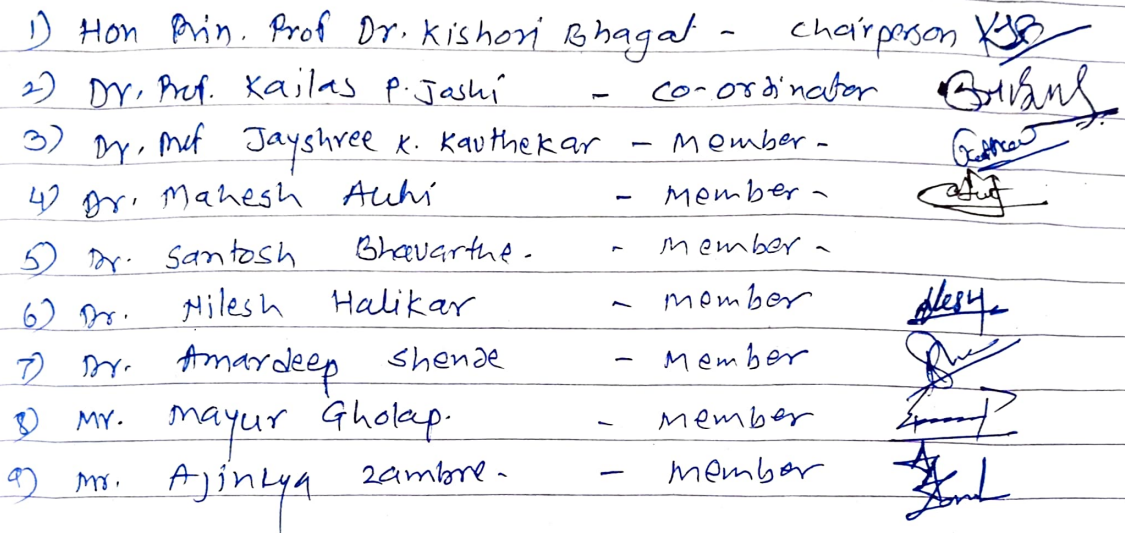 1) Hon Prin. Prof Dr. Kishori Bhagat - Chairperson KJB
2) Dr. Prof. Kailas P. Joshi - Co-ordinator
3) Dr. Prof Jayshree K. Kauthekar - Member -
4) Dr. Mahesh Auhi - Member -
5) Dr. Santosh Bhavarthe. - Member -
6) Dr. Nilesh Halikar - Member
7) Dr. Amardeep Shende - Member
8) Mr. Mayur Gholap. - Member
9) Mr. Ajinkya Zambre - - Member